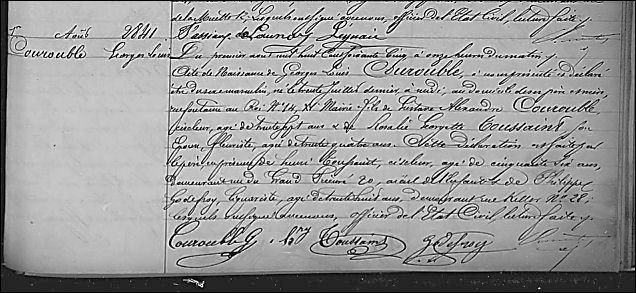 1er Août 2841.
Courouble Georges Louis
de la Mairie
officier de l'Etat Civil, lecture faite.
Du premier août mil huit cent soixante cinq à onze heures du matin
Acte de Naissance de Georges Louis Courouble, ici présenté et déclaré
être du sexe masculin, né le trente Juillet dernier, à midi, au domicile de ses père et mère,
rue fontaine au Roi No 14, XI Mairie, fils de Gustave Alexandre Courouble,
ciseleur, agé de trente sept ans & de Rosalie Georgette Toussaint, son
Epouse, fleuriste, agée de trente quatre ans. Cette déclaration est faite par
le père, en présence de henri Toussaint, ciseleur, agé de cinquante six ans,
demeurant rue du Grand Prieuré 20, aïeul de l'Enfant & de Philippe
Godefroy, agé de trente huit ans, demeurant rue Keller No 28;
lesquels ont signé avec nous, officier de l'Etat Civil, lecture faite.
Courouble G. hy Toussaint Godefroy